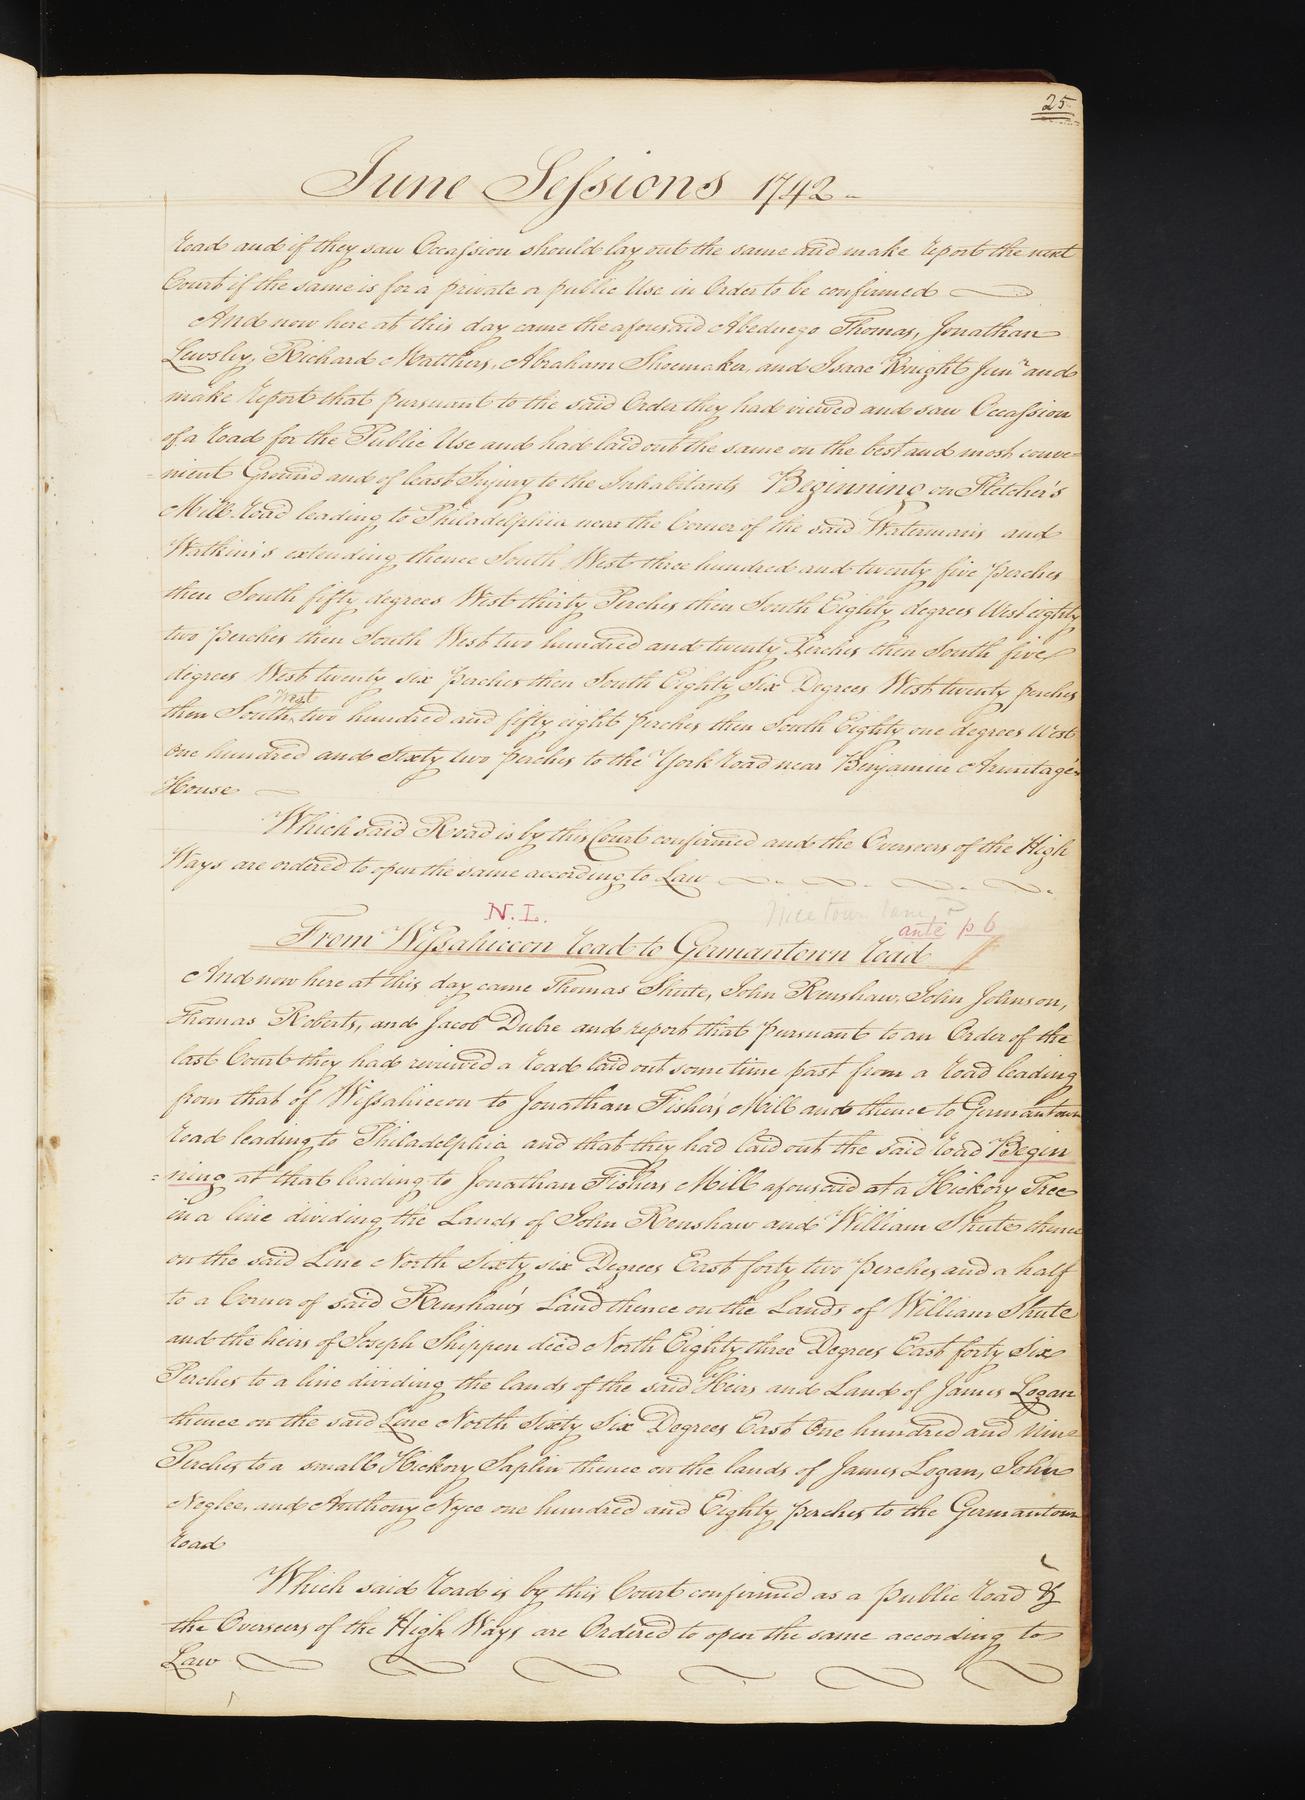 25
June Sessions 1742
road and if they saw Occassion should lay out the same and make report the next
Court if the same is for a private or public Use in Order to be confirmed
And now here at this day came the aforesaid Abednego Thomas, Jonathan
Lewsley, Richard Matthews, Abraham Shoemaker, and Isaac Knight Junr and
make report that pursuant to the said Order they had viewed and saw Occassion
of a road for the Public Use and had laid out the same on the best and most conve=
=nient Ground and of least Injury to the Inhabitants Beginning on Fletcher's
Mill road leading to Philadelphia near the Corner of the said Waterman's and
Watkins's extending thence South West three hundred and twenty five perches
then South fifty degrees West thirty Perches then South Eighty degrees West eighty
two perches then South West two hundred and twenty Perches then South five
degrees West twenty six perches then South Eighty Six Degrees West twenty perches
West
then South two hundred and fifty eight perches then South Eighty one degrees West
one hundred and Sixty two perches to the York road near Benjamin Armitage's
House
Which said Road is by this Court confirmed and the Overseers of the High
Ways are ordered to open the same according to Law
N. L.
Nicetown lane
ante p 6
From Wissahiccon road to Germantown road
And now here at this day came Thomas Shute, John Renshaw, John Johnson,
Thomas Roberts, and Jacob Dubre and report that pursuant to an Order of the
last Court they had reviewed a road laid out some time past from a road leading
from that of Wissahiccon to Jonathan Fisher's Mill and thence to Germantown
road leading to Philadelphia and that they had laid out the said road Begin
=ning at that leading to Jonathan Fishers Mill aforesaid at a Hickory Tree
in a line dividing the Lands of John Renshaw and William Shute thence
on the said Line North Sixty six Degrees East forty two perches and a half
to a Corner of said Renshaw's Land thence on the Lands of William Shute
and the heirs of Joseph Shippen decd North Eighty three Degrees East forty Six
Perches to a line dividing the lands of the said Heirs and Land of James Logan
thence on the said Line North Sixty Six Degrees East One hundred and Nine
Perches to a small Hickory Saplin thence on the lands of James Logan, John
Neglee, and Anthony Nyce one hundred and Eighty perches to the Germantown
road
Which said road is by this Court confirmed as a public road &
the Overseers of the High Ways are Ordered to open the same according to
Law